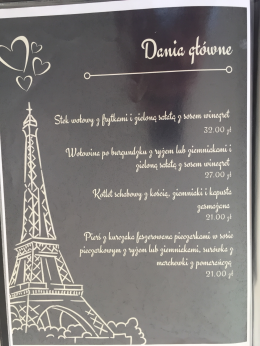 Dania główne
Stek wołowy z frytkami i zieloną sałatą z sosem winegret
32.00 zł
Wołowina po burgundzku z ryżem lub ziemniakami i
zieloną sałatą z sosem winegret
27.00 zł
Kotlet schabowy z kością, ziemniaki i kapusta
zasmażana
21.00 zł
Pierś z kurczaka faszerowana pieczarkami w sosie
pieczarkowym z ryżem lub ziemniakami, surówka z
marchewki z pomarańczą
21.00 zł